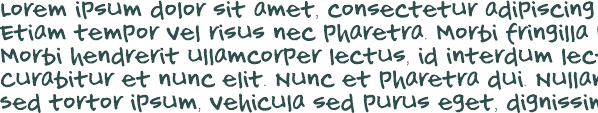 Lorem ipsum dolor sit amet, consectetur adipiscing
Etiam tempor vel risus nec pharetra. Morbi fringilla
Morbi hendrerit ullamcorper lectus, id interdum lec
Curabitur et nunc elit. Nunc et pharetra dui. Nullam
sed tortor ipsum, vehicula sed purus eget, dignissim